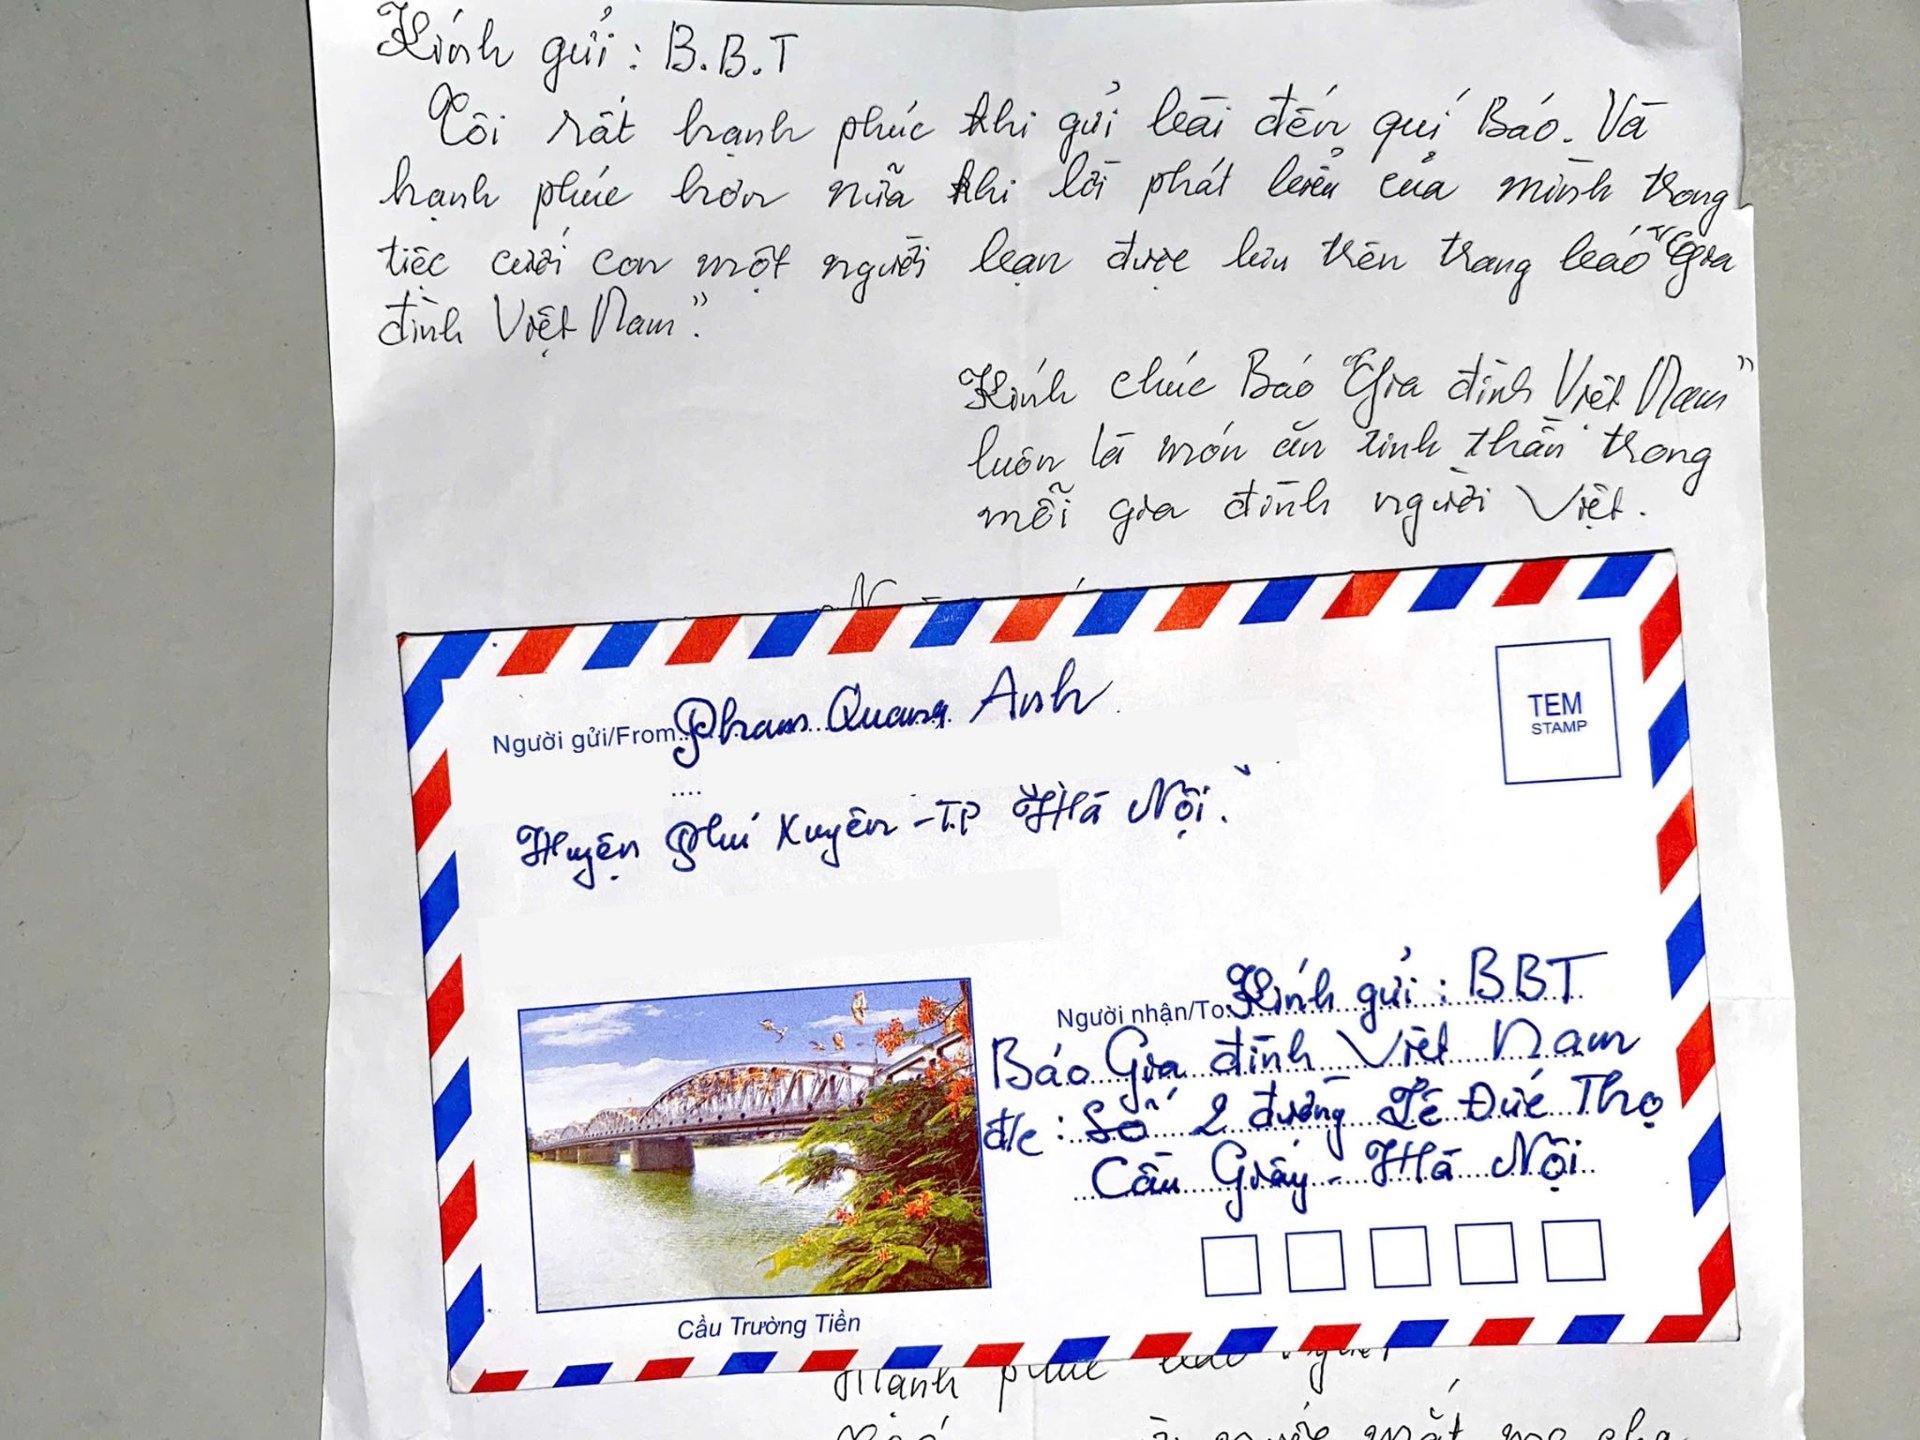 Kính gửi : B.B.T
Tôi rất hạnh phúc khi gửi bài đến quí Báo. Và
hạnh phúc hơn nữa khi lời phát biểu của mình trong
tiệc cưới con một người bạn được lưu trên trang báo "Gia
đình Việt Nam".
Kính chúc Báo "Gia đình Việt Nam"
luôn là món ăn tinh thần trong
mỗi gia đình người Việt.
Người gửi/From Pham Quang Anh
TEM
STAMP
Huyện Phú Xuyên - T.P Hà Nội.
Người nhận/To: Kính gửi : BBT
Báo Gia đình Việt Nam
đ/c : Số 2 đường Lê Đức Thọ
Cầu Giấy - Hà Nội
Cầu Trường Tiền
Hạnh phúc
nước mắt mẹ cha